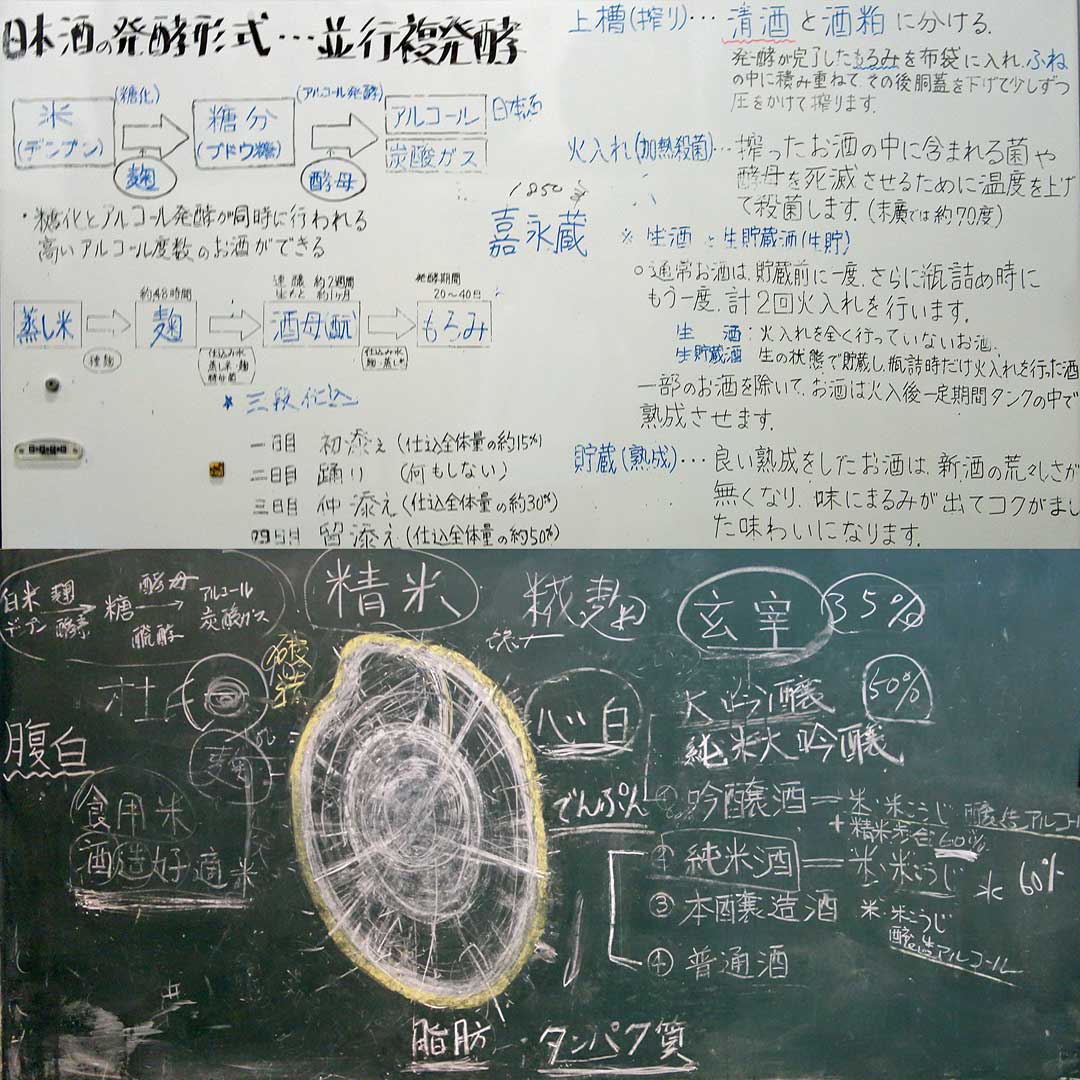 日本酒の発酵形式…並行複発酵
米
(デンプン)
(糖化)
麹
糖分
(ブドウ糖)
(アルコール発酵)
酵母
アルコール
炭酸ガス
日本酒
・糖化とアルコール発酵が同時に行われる
高いアルコール度数のお酒ができる
1850
嘉永蔵
蒸し米
種麹
約48時間
麹
仕込み水
蒸し米・麹
速醸 約2週間
約1ヶ月
酒母(酛)
仕込み水
麹・蒸し米
発酵期間
20〜40日
もろみ
★ 三段仕込
一日目 初添え (仕込全体量の約15%)
二日目 踊り (何もしない)
三日目 仲添え (仕込全体量の約30%)
四日目 留添え (仕込全体量の約50%)
上槽(搾り)… 清酒と酒粕に分ける.
発酵が完了したもろみを布袋に入れ、ふね
の中に積み重ねて、その後胴蓋を下げて少しずつ
圧をかけて搾ります.
火入れ(加熱殺菌)… 搾ったお酒の中に含まれる菌や
酵母を死滅させるために温度を上げ
て殺菌します.(末廣では約70度)
※ 生酒 と 生貯蔵酒(生貯)
○通常お酒は、貯蔵前に一度、さらに瓶詰め時に
もう一度、計2回火入れを行います.
生 酒:火入れを全く行っていないお酒.
生貯蔵酒 生の状態で貯蔵し、瓶詰時だけ火入れを行った酒
一部のお酒を除いて、お酒は火入後一定期間タンクの中で
熟成させます.
貯蔵(熟成)… 良い熟成をしたお酒は、新酒の荒々しさが
無くなり、味にまるみが出てコクがまし
た味わいになります.
白米 麹 糖 酵母 アルコール
デンプン 酵素 醗酵 炭酸ガス
精米
糀 麹
玄宰 35%
杜氏
腹白
食用米
酒造好適米
心白
でんぷん
大吟醸 50%
純米大吟醸
① 吟醸酒 ー 米・米こうじ 醸造アルコー
+ 精米歩合 60%
② 純米酒 ー 米・米こうじ 水 60%
③ 本醸造酒 米・米こうじ
醸造アルコール
④ 普通酒
脂肪 タンパク質